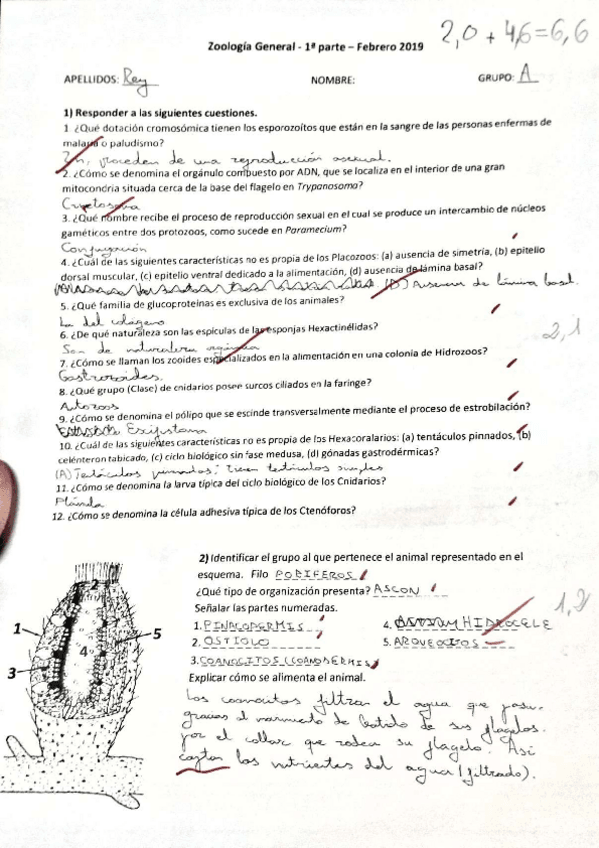 2,0 + 4,6 = 6,6
Zoología General - 1ª parte – Febrero 2019
APELLIDOS: Rey NOMBRE: GRUPO: A
1) Responder a las siguientes cuestiones.
1. ¿Qué dotación cromosómica tienen los esporozoítos que están en la sangre de las personas enfermas de
malaria o paludismo?
2n, proceden de una reproducción asexual.
2. ¿Cómo se denomina el orgánulo compuesto por ADN, que se localiza en el interior de una gran
mitocondria situada cerca de la base del flagelo en Trypanosoma?
3. ¿Qué nombre recibe el proceso de reproducción sexual en el cual se produce un intercambio de núcleos
gaméticos entre dos protozoos, como sucede en Paramecium?
Conjugación
4. ¿Cuál de las siguientes características no es propia de los Placozoos: (a) ausencia de simetría, (b) epitelio
dorsal muscular, (c) epitelio ventral dedicado a la alimentación, (d) ausencia de lámina basal?
(D) Ausencia de lámina basal.
5. ¿Qué familia de glucoproteínas es exclusiva de los animales?
La del colágeno
6. ¿De qué naturaleza son las espículas de las esponjas Hexactinélidas?
Son de naturaleza
2,1
7. ¿Cómo se llaman los zooides especializados en la alimentación en una colonia de Hidrozoos?
Gastrozoides.
8. ¿Qué grupo (Clase) de cnidarios posee surcos ciliados en la faringe?
Antozoos
9. ¿Cómo se denomina el pólipo que se escinde transversalmente mediante el proceso de estrobilación?
Escifistoma
10. ¿Cuál de las siguientes características no es propia de los Hexacoralarios: (a) tentáculos pinnados, (b)
celénteron tabicado, (c) ciclo biológico sin fase medusa, (d) gónadas gastrodérmicas?
(A) Tentáculos pinnados; tienen tentáculos simples
11. ¿Cómo se denomina la larva típica del ciclo biológico de los Cnidarios?
Plánula
12. ¿Cómo se denomina la célula adhesiva típica de los Ctenóforos?
2) Identificar el grupo al que pertenece el animal representado en el
esquema. Filo PORIFEROS
¿Qué tipo de organización presenta? ASCON
Señalar las partes numeradas.
1. PINACODERMIS 4. HIDROCELE
2. OSTIOLO 5. ARQUEOCITOS
3. COANOCITOS (COANODERMIS)
Explicar cómo se alimenta el animal.
Los coanocitos filtran el agua que pasa
gracias al movimiento de batido de sus flagelos.
por el collar que rodea su flagelo. Así
captan los nutrientes del agua (filtrado).
1
2
3
4
5